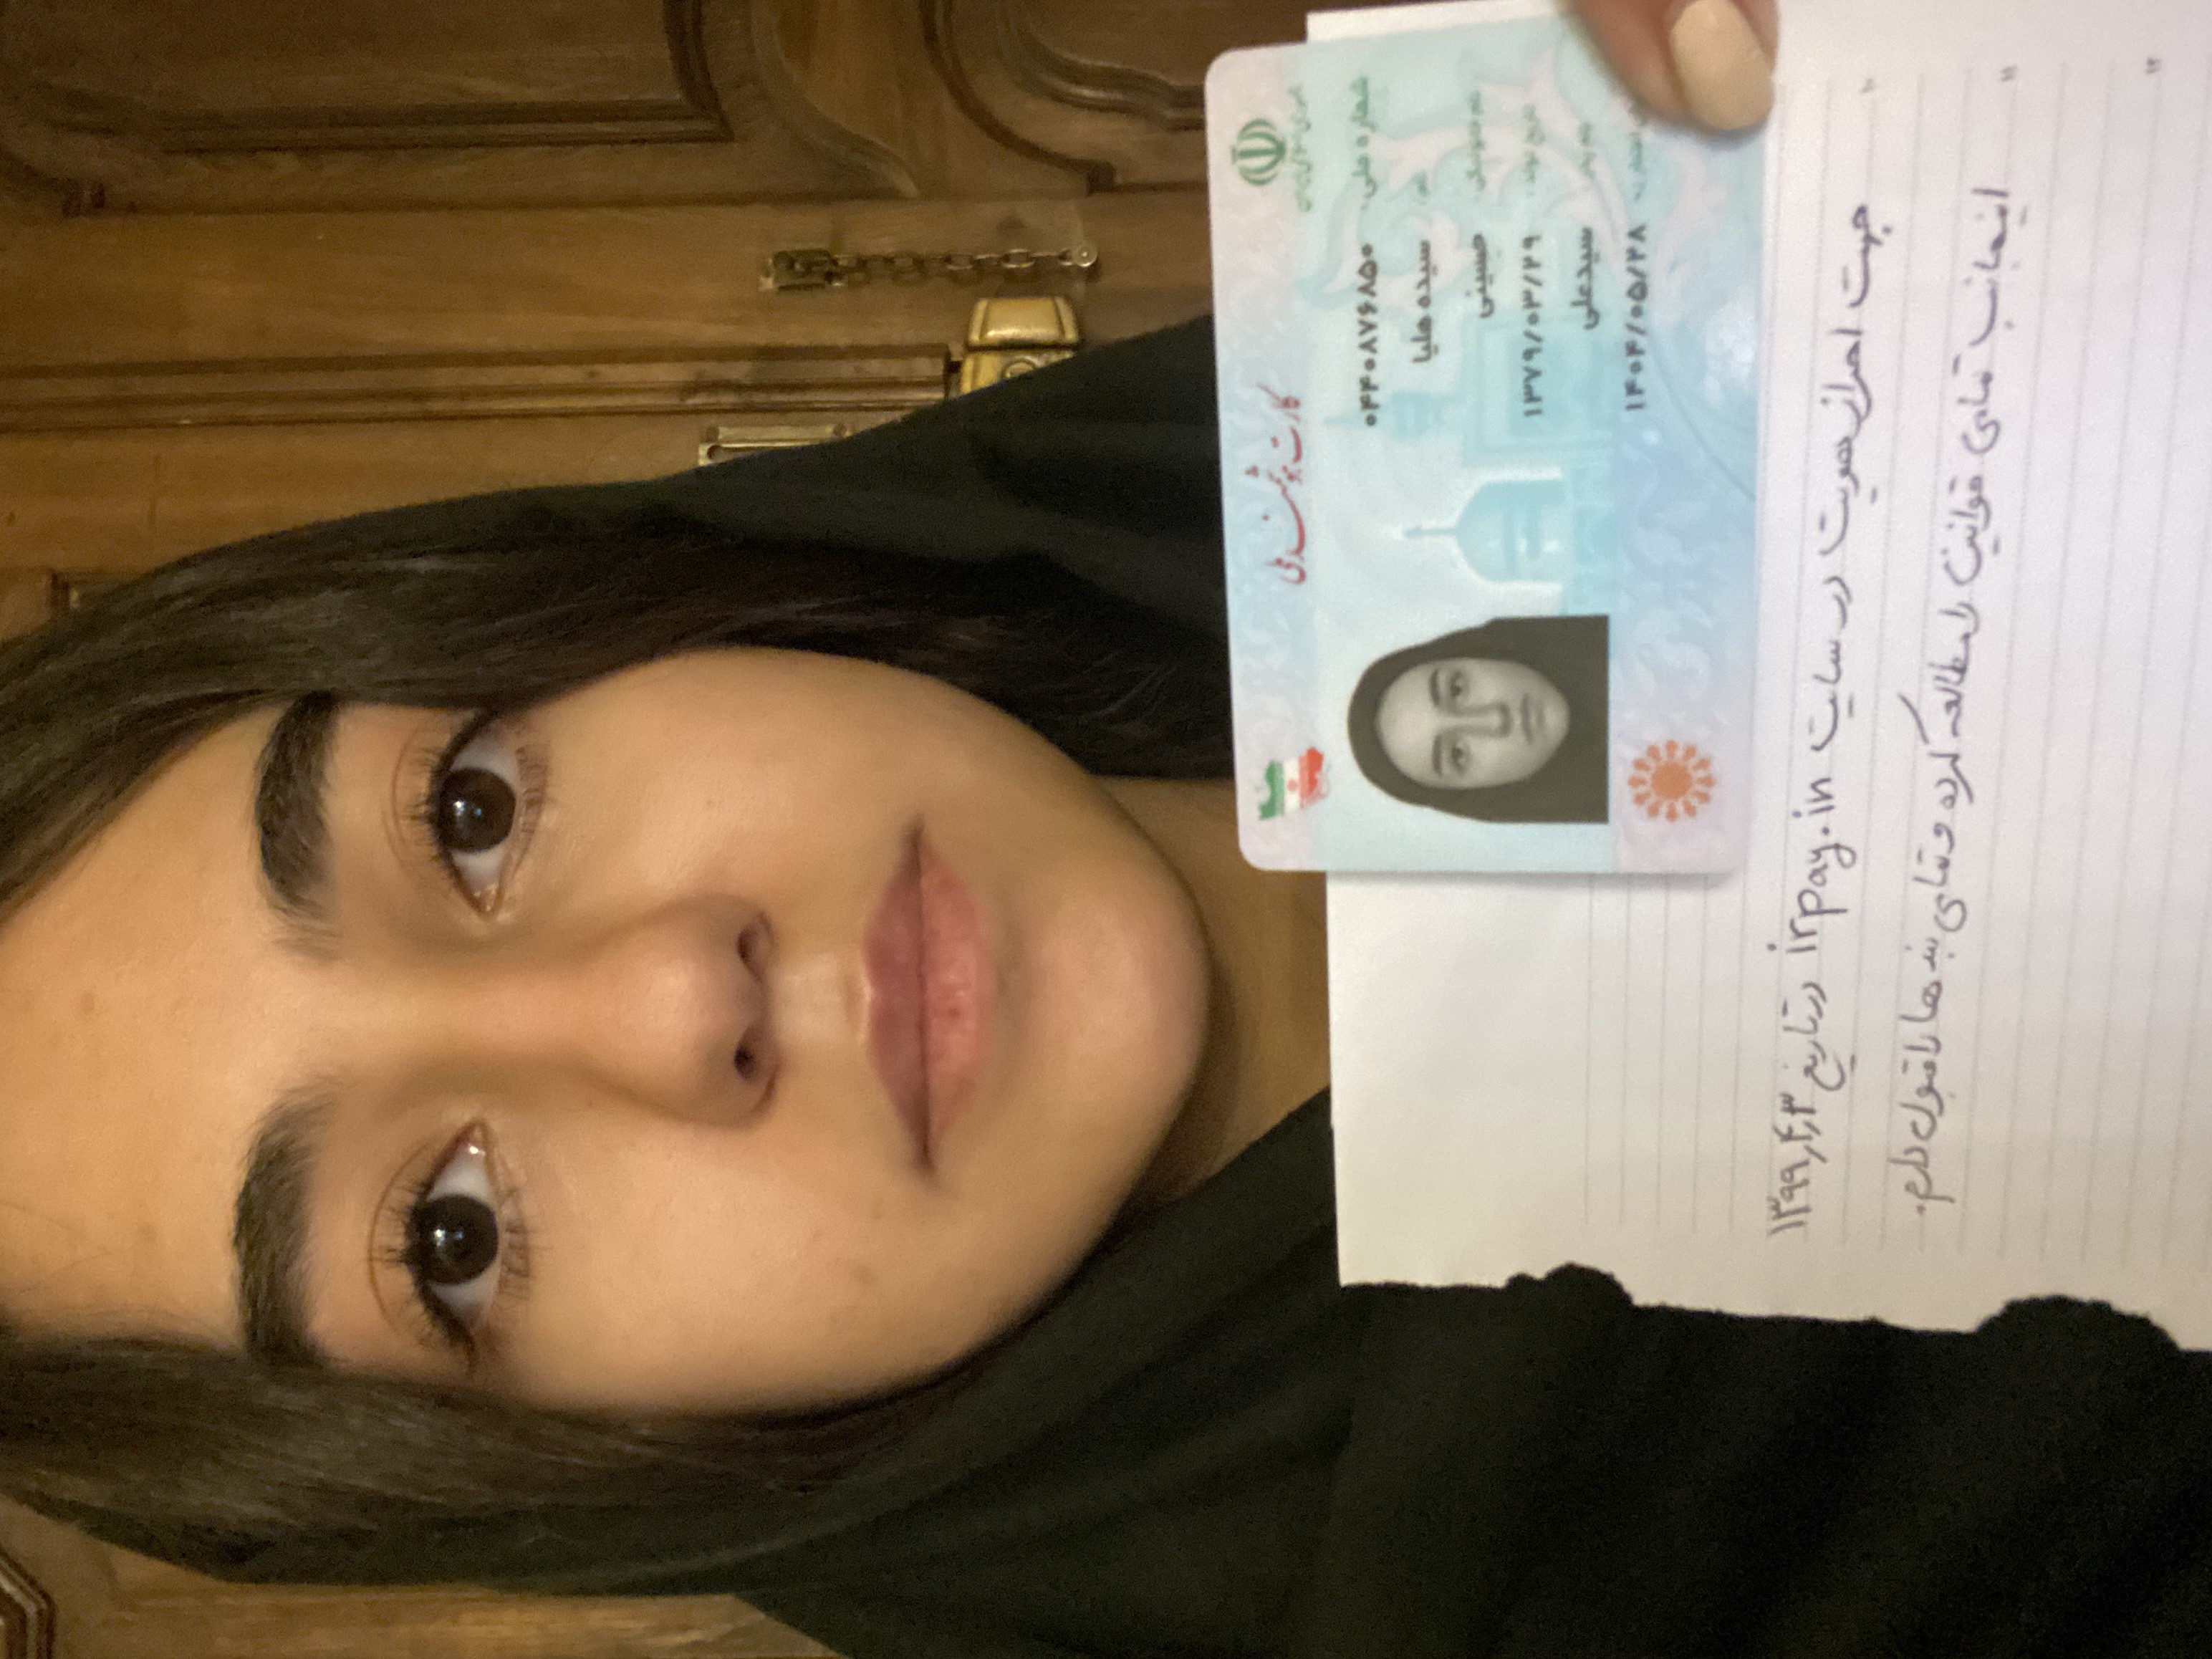 کارت هوشمند ملی
شماره ملی: ۰۴۴۰۸۷۶۸۵۰
نام: سیده هلیا
نام خانوادگی: حسینی
تاریخ تولد: ۱۳۷۹/۰۳/۲۹
نام پدر: سیدعلی
۱۴۰۴/۰۵/۲۸
۱۰ جهت احراز هویت در سایت irpay.in در تاریخ ۱۳۹۹٫۴٫۳
۱۱ اینجانب تمامی قوانین را مطالعه کرده و تمامی بند ها را قبول دارم.
۱۲